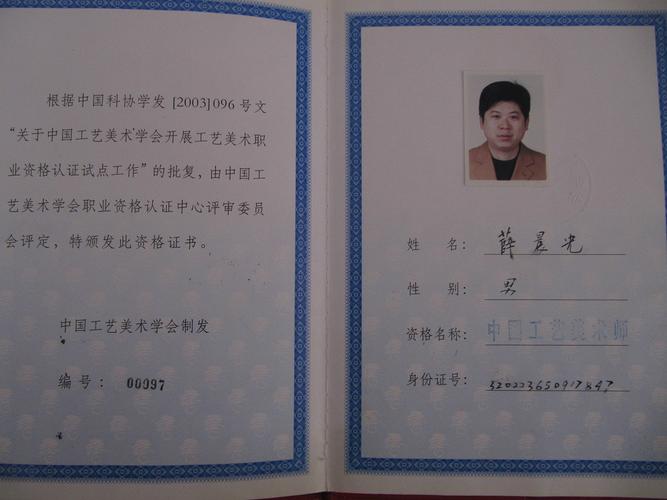 根据中国科协学发[2003]096号文
“关于中国工艺美术学会开展工艺美术职
业资格认证试点工作”的批复，由中国工
艺美术学会职业资格认证中心评审委员
会评定，特颁发此资格证书。
中国工艺美术学会制发
编号：00097
姓名：薛晨光
性别：男
资格名称：中国工艺美术师
身份证号：320223650917847